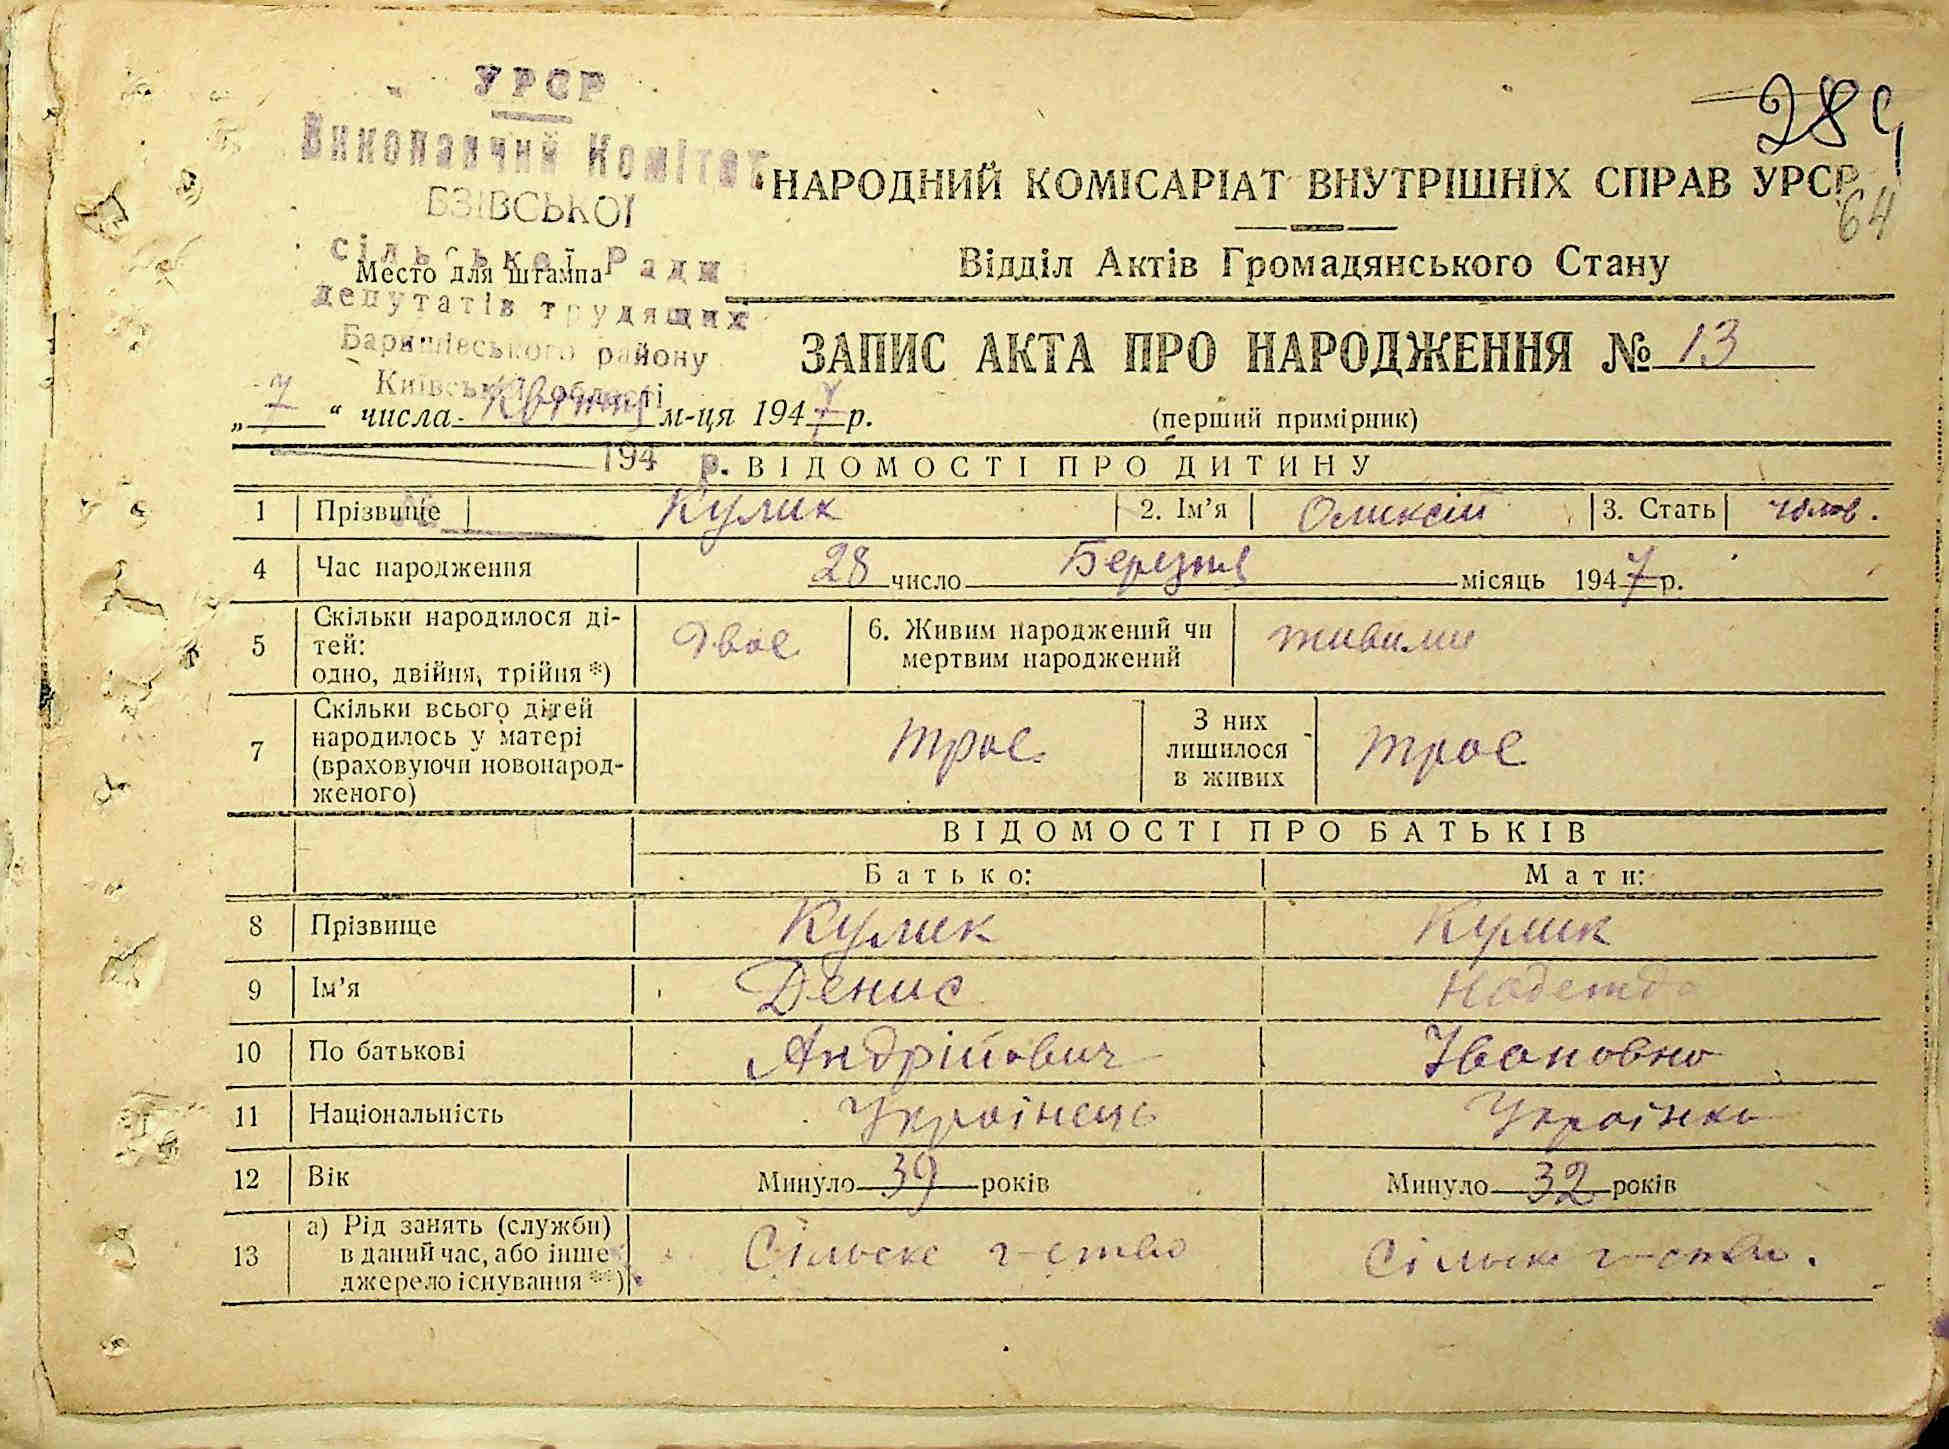 УРСР
Виконавчий Комітет
БЗІВСЬКОЇ
сільської Ради
депутатів трудящих
Баришівського району
Київської області
194 р.
№
Место для штампа
289
64
НАРОДНИЙ КОМІСАРІАТ ВНУТРІШНІХ СПРАВ УРСР
Відділ Актів Громадянського Стану
ЗАПИС АКТА ПРО НАРОДЖЕННЯ № 13
„7“ числа Квітня м-ця 1947 р. (перший примірник)
ВІДОМОСТІ ПРО ДИТИНУ
1 Прізвище Кулик 2. Ім’я Оликсій 3. Стать чолов.
4 Час народження 28 число Березня місяць 1947 р.
5 Скільки народилося ді-
тей:
одно, двійня, трійня *) Двоє 6. Живим народжений чи
мертвим народжений живими
7 Скільки всього дітей
народилось у матері
(враховуючи новонарод-
женого) троє З них
лишилося
в живих троє
ВІДОМОСТІ ПРО БАТЬКІВ
Батько: Мати:
8 Прізвище Кулик Кулик
9 Ім’я Денис Надежда
10 По батькові Андрійович Івановна
11 Національність Українець Українка
12 Вік Минуло 39 років Минуло 32 років
13 а) Рід занять (служби)
в даний час, або інше
джерело існування **) Сільске г-ство Сільске г-ство.